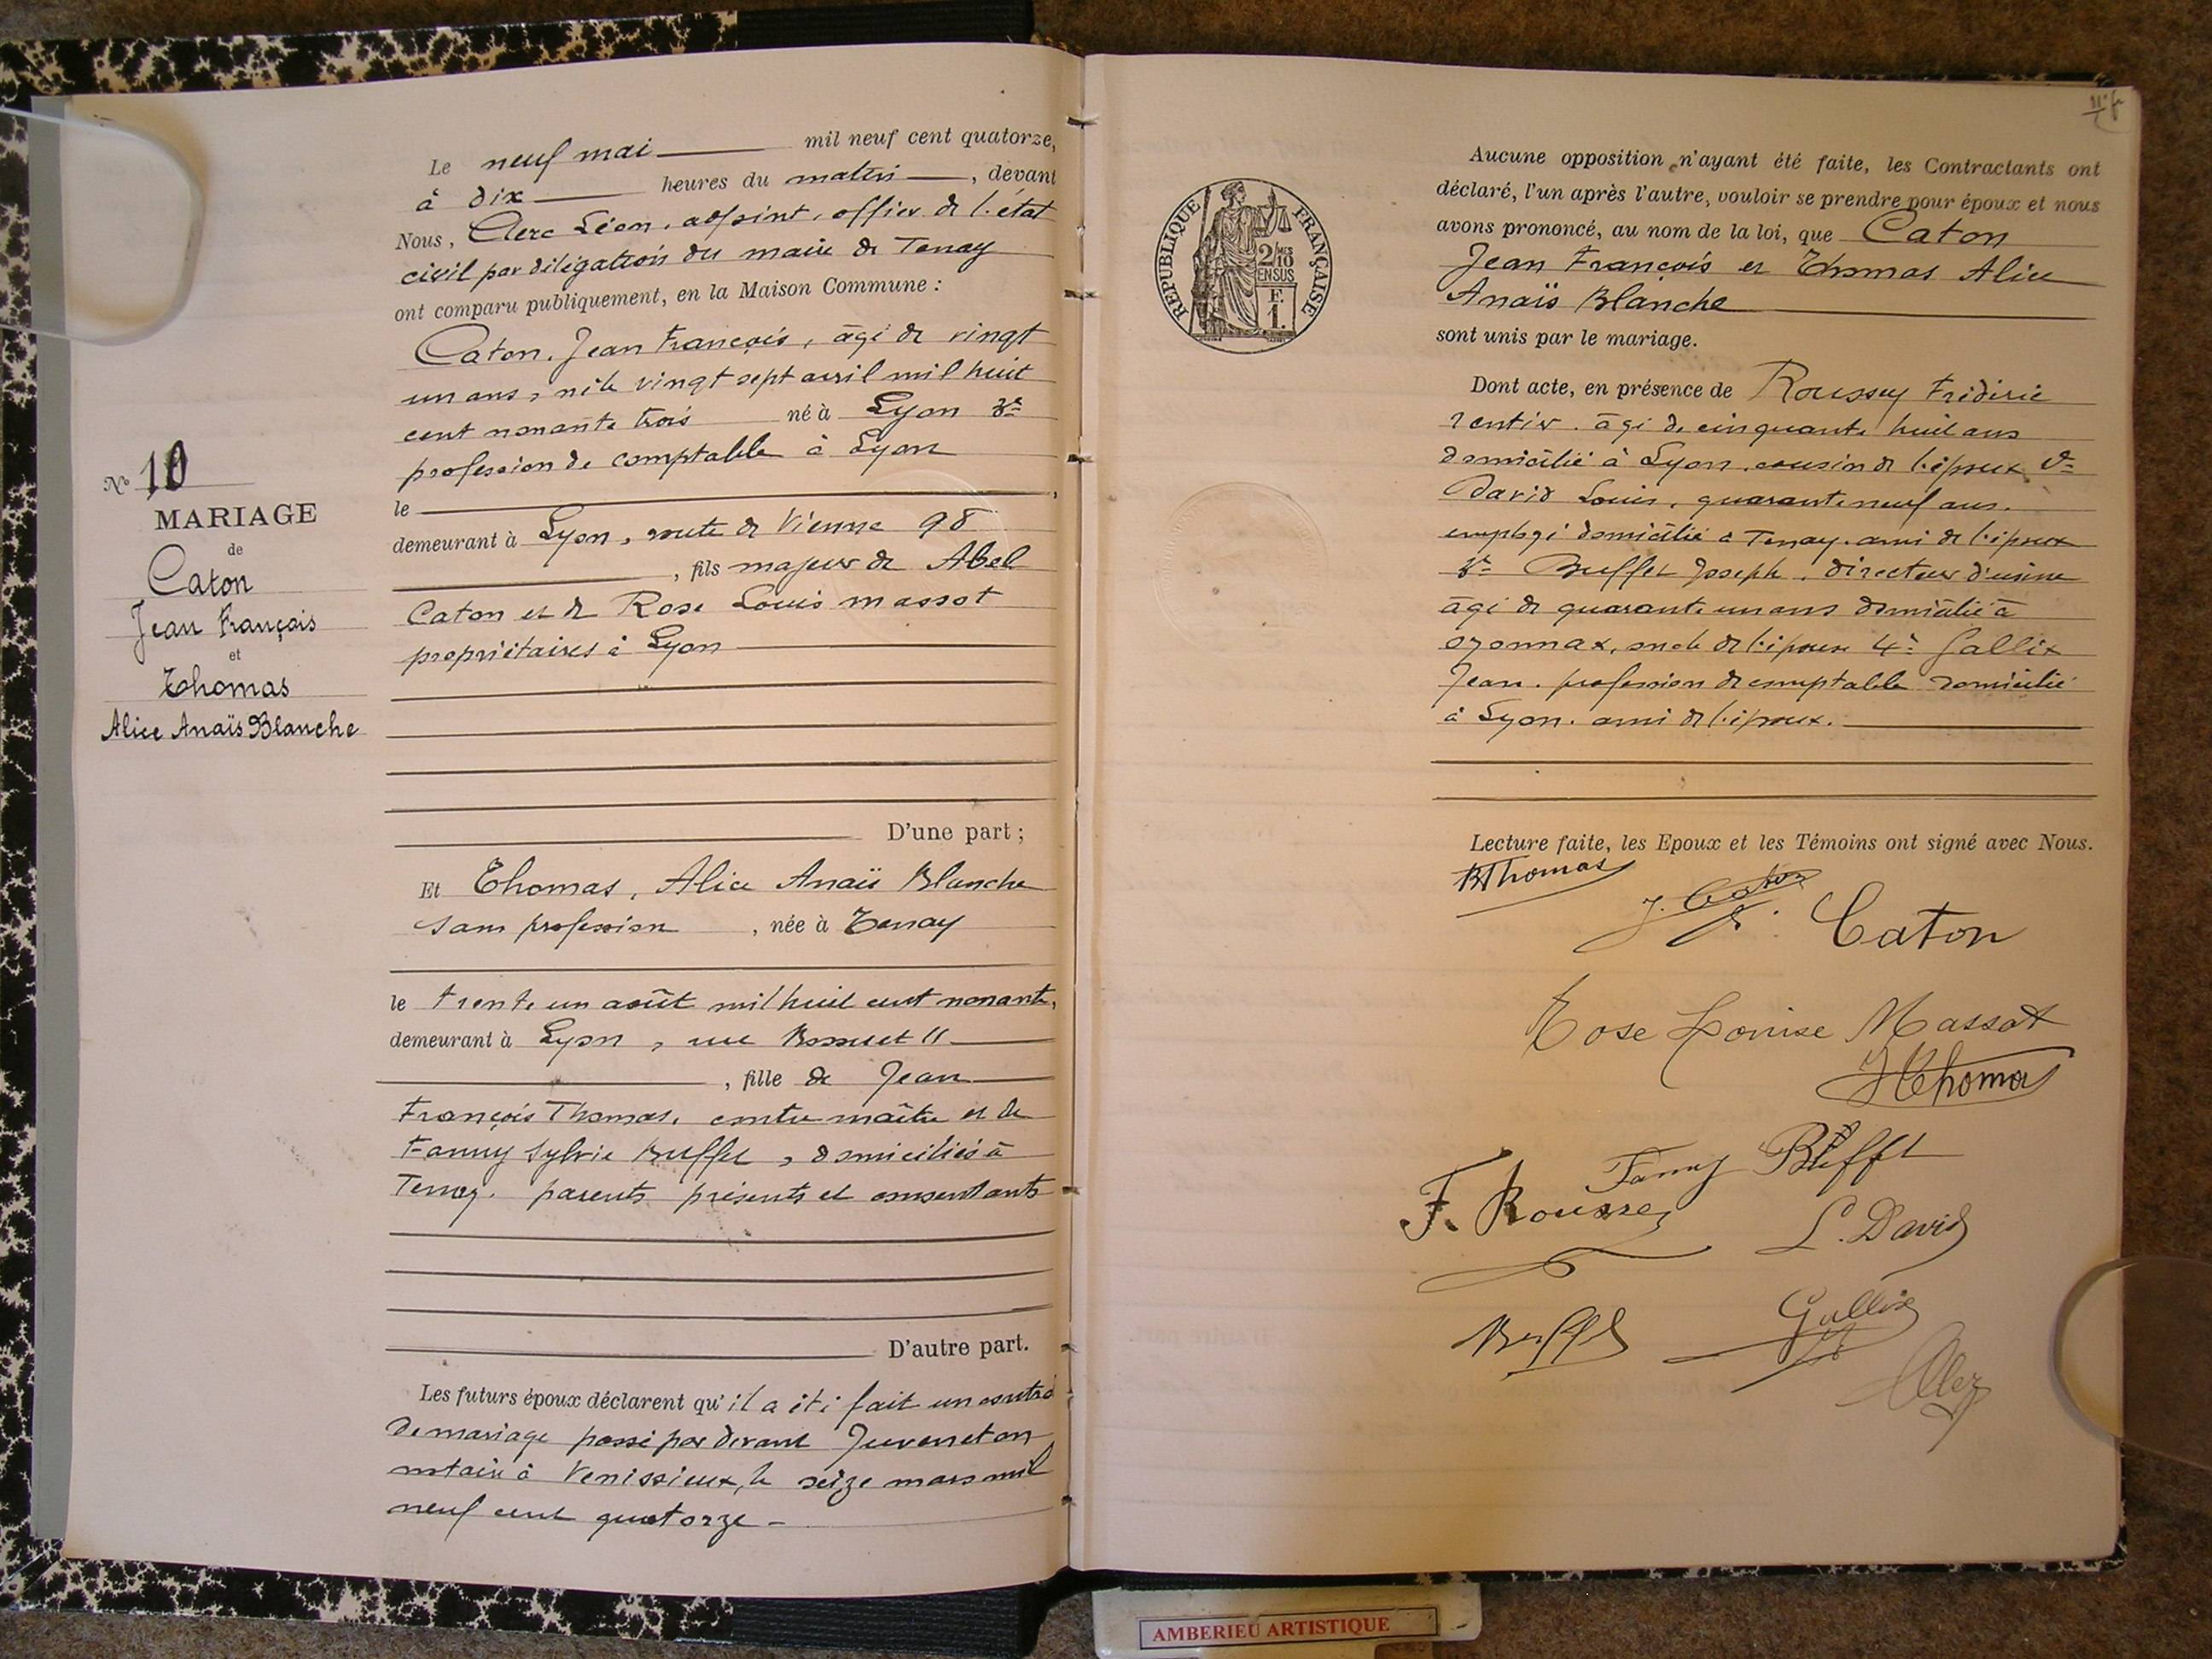 Le neuf mai mil neuf cent quatorze,
à dix heures du matin, devant
Nous, Clerc Léon, adjoint, officier de l'état
civil par délégation du maire de Tenay
ont comparu publiquement, en la Maison Commune :
Caton, Jean François, âgé de vingt
un ans, né le vingt sept avril mil huit
cent nonante trois né à Lyon 3e
profession de comptable à Lyon
le
demeurant à Lyon, route de Vienne 98
, fils majeur de Abel
Caton et de Rose Louis massot
propriétaires à Lyon
D'une part ;
Et Thomas, Alice Anaïs Blanche
sans profession, née à Tenay
le trente un août mil huit cent nonante,
demeurant à Lyon, rue Bossuet 11
, fille de Jean
François Thomas, contre maître et de
Fanny Sylvie Buffet, domiciliés à
Tenay. parents présents et consentants
D'autre part.
Les futurs époux déclarent qu'il a été fait un contra
de mariage passé par devant Juveneton
notaire à Venissieux, le seize mars mil
neuf cent quatorze -
No 10
MARIAGE
de
Caton
Jean François
et
Thomas
Alice Anaïs Blanche
RÉPUBLIQUE FRANÇAISE
2/10 MES
EN SUS
F.
1.
Aucune opposition n'ayant été faite, les Contractants ont
déclaré, l'un après l'autre, vouloir se prendre pour époux et nous
avons prononcé, au nom de la loi, que Caton
Jean François et Thomas Alice
Anaïs Blanche
sont unis par le mariage.
Dont acte, en présence de Roussey Frédéric
rentier. âgé de cinquante huit ans
domicilié à Lyon, cousin de l'époux 2e
David Louis, quarante neuf ans.
employé domicilié à Tenay. ami de l'époux
3e Buffet Joseph, directeur d'usine
âgé de quarante un ans domicilié à
oyonnax, oncle de l'épouse 4e Gallix
Jean. profession de comptable domicilié
à Lyon. ami de l'époux.
Lecture faite, les Epoux et les Témoins ont signé avec Nous.
BThomas
J. Caton
Caton
Rose Louise Massot
JThomas
Fanny Buffet
F. Roussey
L. David
Buffet
Gallix
Clerc
AMBERIEU ARTISTIQUE